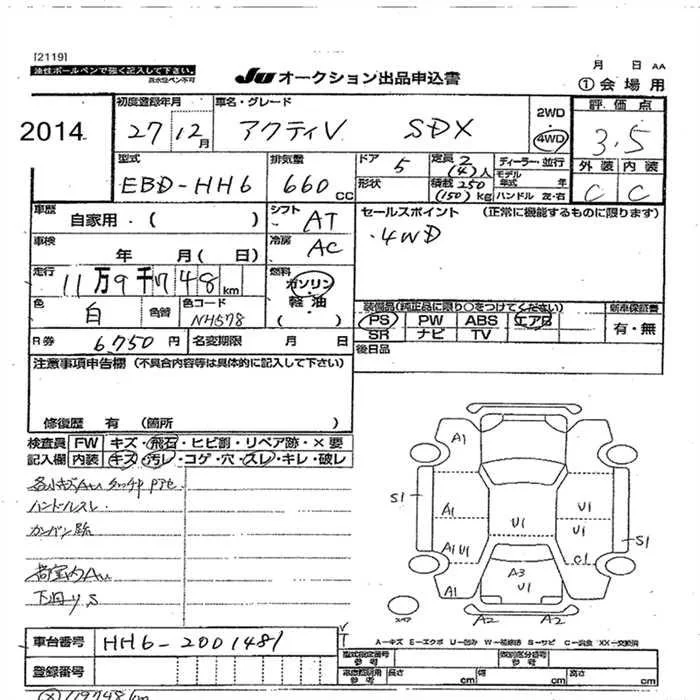 [2119]
油性ボールペンで強く記入して下さい。
月 日 AA
JU オークション出品申込書
① 会場用
2014
初度登録年月
27 12月
車名・グレード
アクティV SDX
2WD
4WD
評価点
3.5
外装 内装
C C
型式
EBD-HH6
排気量
660 CC
ドア 5
形状
定員 2 (4)人
積載 250 (150)kg
ディーラー・並行
モデル年式 年
ハンドル 左・右
車歴
自家用・( )
シフト AT
セールスポイント (正常に機能するものに限ります)
・4WD
車検
年 月( 日)
冷房 AC
走行
11万9千748km
燃料
ガソリン
軽油
( )
色 白 色替
色コード
NH578
装備品(純正品に限り○をつけてください)
PS PW ABS エアB
SR ナビ TV
新車保証書
有・無
R券 6,750円 名変期限 月 日
後日品
注意事項申告欄 (不具合内容等は具体的に記入して下さい)
修復歴 有 (箇所 )
検査員 FW キズ・飛石・ヒビ割・リペア跡・×要
記入欄 内装 キズ・汚レ・コゲ・穴・スレ・キレ・破レ
ハンドルスレ
カンバン跡
荷室内AU
下回りS
A1
S1
A1
U1
U1
A1 U1
U1
S1
C1
A3
U1
A1
スペア
A2 A2
A-キズ E-エクボ U-凹み W-補修跡 S-サビ C-腐食 XX-交換済
車台番号 HH6-2001481
登録番号
型式指定番号 参考
類別区分番号 参考
長さ cm 幅 cm 高さ cm
119748km